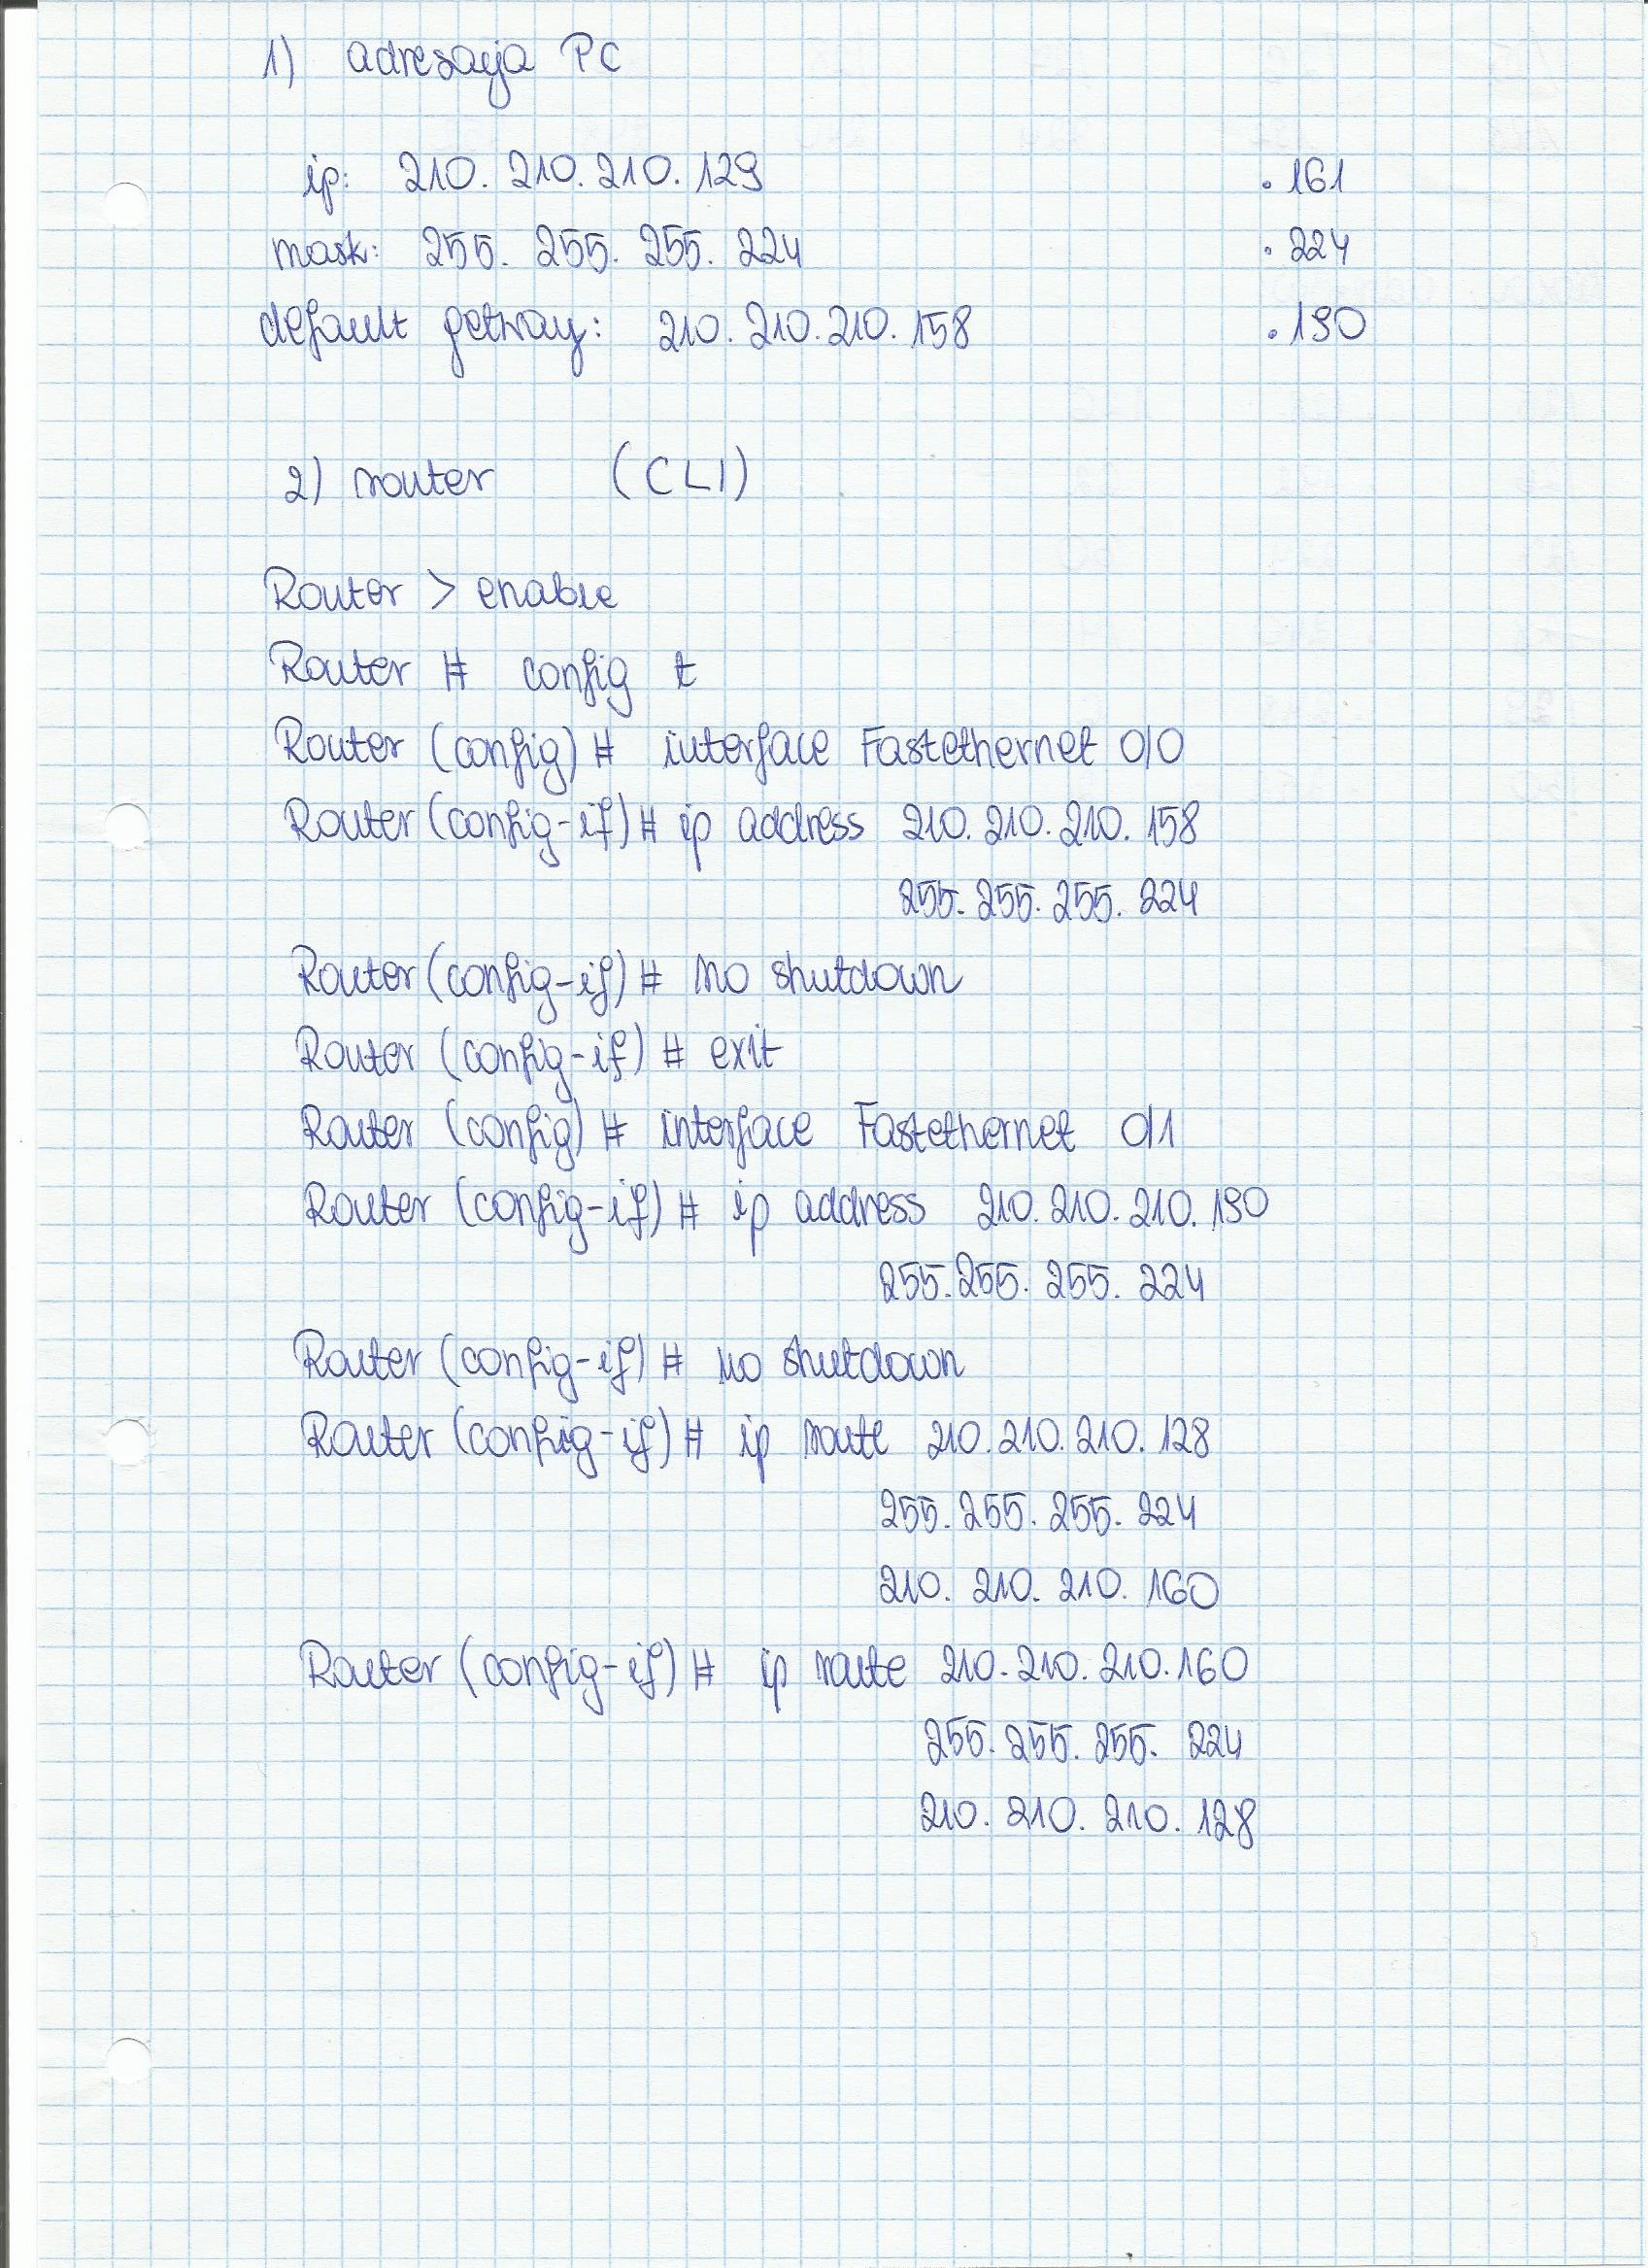 1) adresacja PC
ip: 210. 210. 210. 129 . 161
mask: 255. 255. 255. 224 . 224
default getway: 210. 210. 210. 158 . 190
2) router (CLI)
Router > enable
Router # config t
Router (config) # interface Fastethernet 0/0
Router (config-if) # ip address 210. 210. 210. 158
255. 255. 255. 224
Router (config-if) # no shutdown
Router (config-if) # exit
Router (config) # interface Fastethernet 0/1
Router (config-if) # ip address 210. 210. 210. 190
255. 255. 255. 224
Router (config-if) # no shutdown
Router (config-if) # ip route 210. 210. 210. 128
255. 255. 255. 224
210. 210. 210. 160
Router (config-if) # ip route 210. 210. 210. 160
255. 255. 255. 224
210. 210. 210. 128